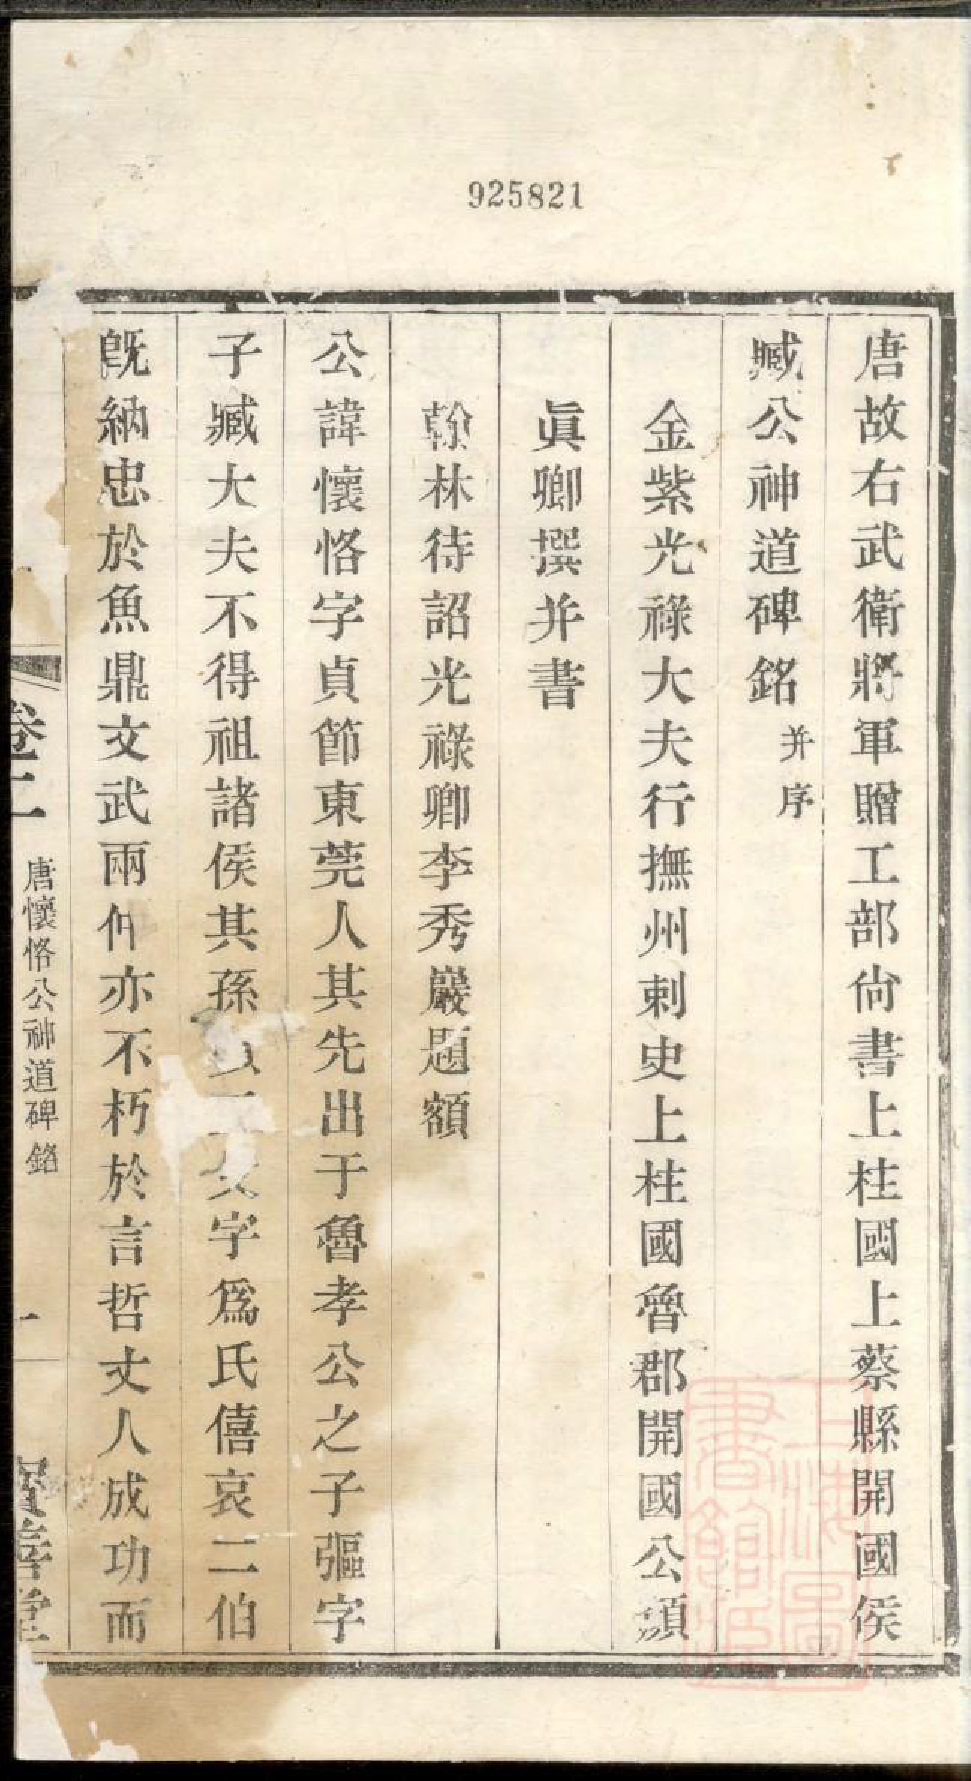 925821
唐故右武衛將軍贈工部尙書上柱國上蔡縣開國侯
臧公神道碑銘 并序
金紫光祿大夫行撫州刺史上柱國魯郡開國公顔
眞卿撰并書
翰林待詔光祿卿李秀巖題額
公諱懷恪字貞節東莞人其先出于魯孝公之子彄字
子臧大夫不得祖諸侯其孫以王父字爲氏僖哀二伯
旣納忠於魚鼎文武兩仲亦不朽於言哲丈人成功而
卷二
唐懷恪公神道碑銘
一
上海圖書館藏